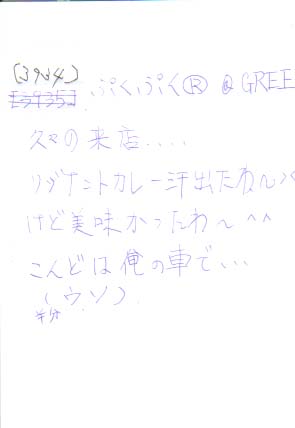 (3934)
[3935] ぷくぷく® @GREE
久々の来店....
リヴァントカレー汗出たね〜><
けど美味かったわ〜^^
こんどは俺の車で...
(ウソ)
半分